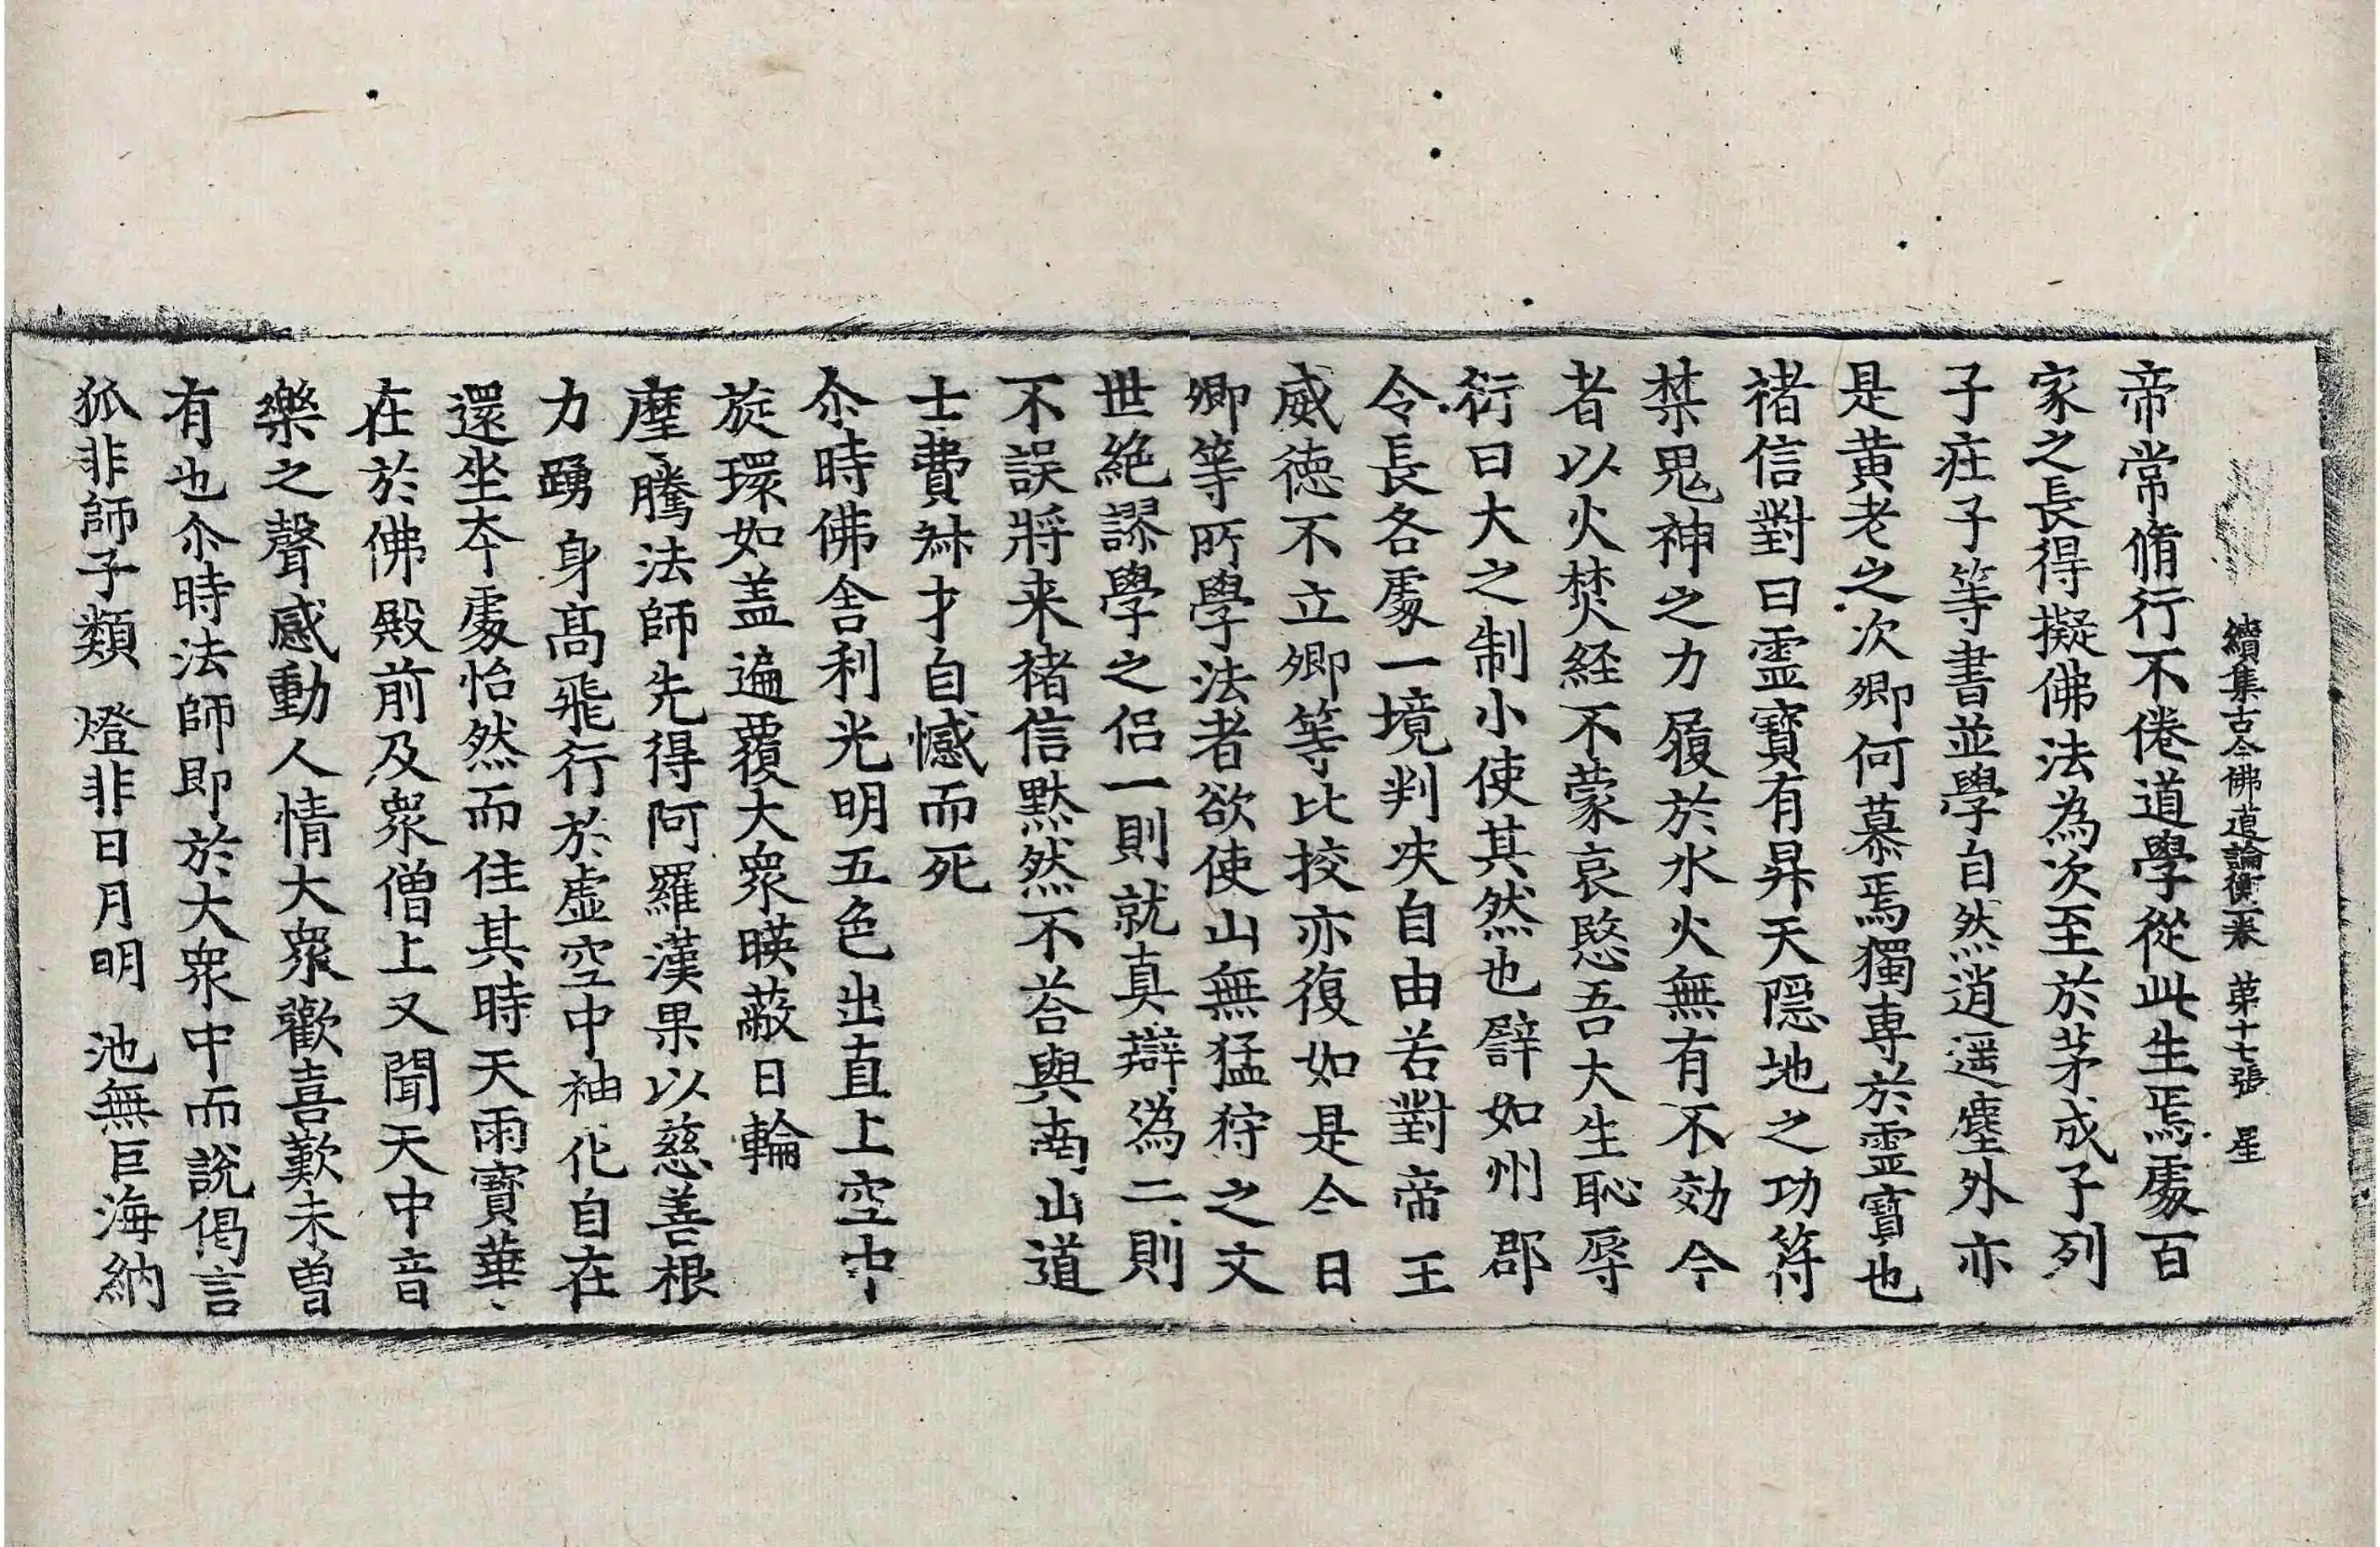 續集古今佛道論衡一卷 第十七張 星
帝常脩行不倦道學從此生焉處百
家之長得擬佛法為次至於茅成子列
子疘子等書並學自然逍遥塵外亦
是黃老之次卿何慕焉獨專於霊寶也
褚信對曰霊寶有昇天隠地之功符
禁鬼神之力履於水火無有不効今
者以火焚経不蒙哀愍吾大生恥辱
衍曰大之制小使其然也譬如州郡
令長各處一境判决自由若對帝王
威徳不立卿等比挍亦復如是今日
卿等所學法者欲使山無猛狩之文
世絶謬學之侣一則就真辯偽二則
不誤將来褚信黙然不荅與南山道
士費𣧑才自憾而死
尒時佛舍利光明五色出直上空中
旋環如盖遍覆大衆暎蔽日輪
摩騰法師先得阿羅漢果以慈善根
力踴身髙飛行於虚空中神化自在
還坐夲處怡然而住其時天雨寶華
在於佛殿前及衆僧上又聞天中音
樂之聲感動人情大衆歡喜歎未曾
有也尒時法師即於大衆中而說偈言
狐非師子類 燈非日月明 池無巨海納